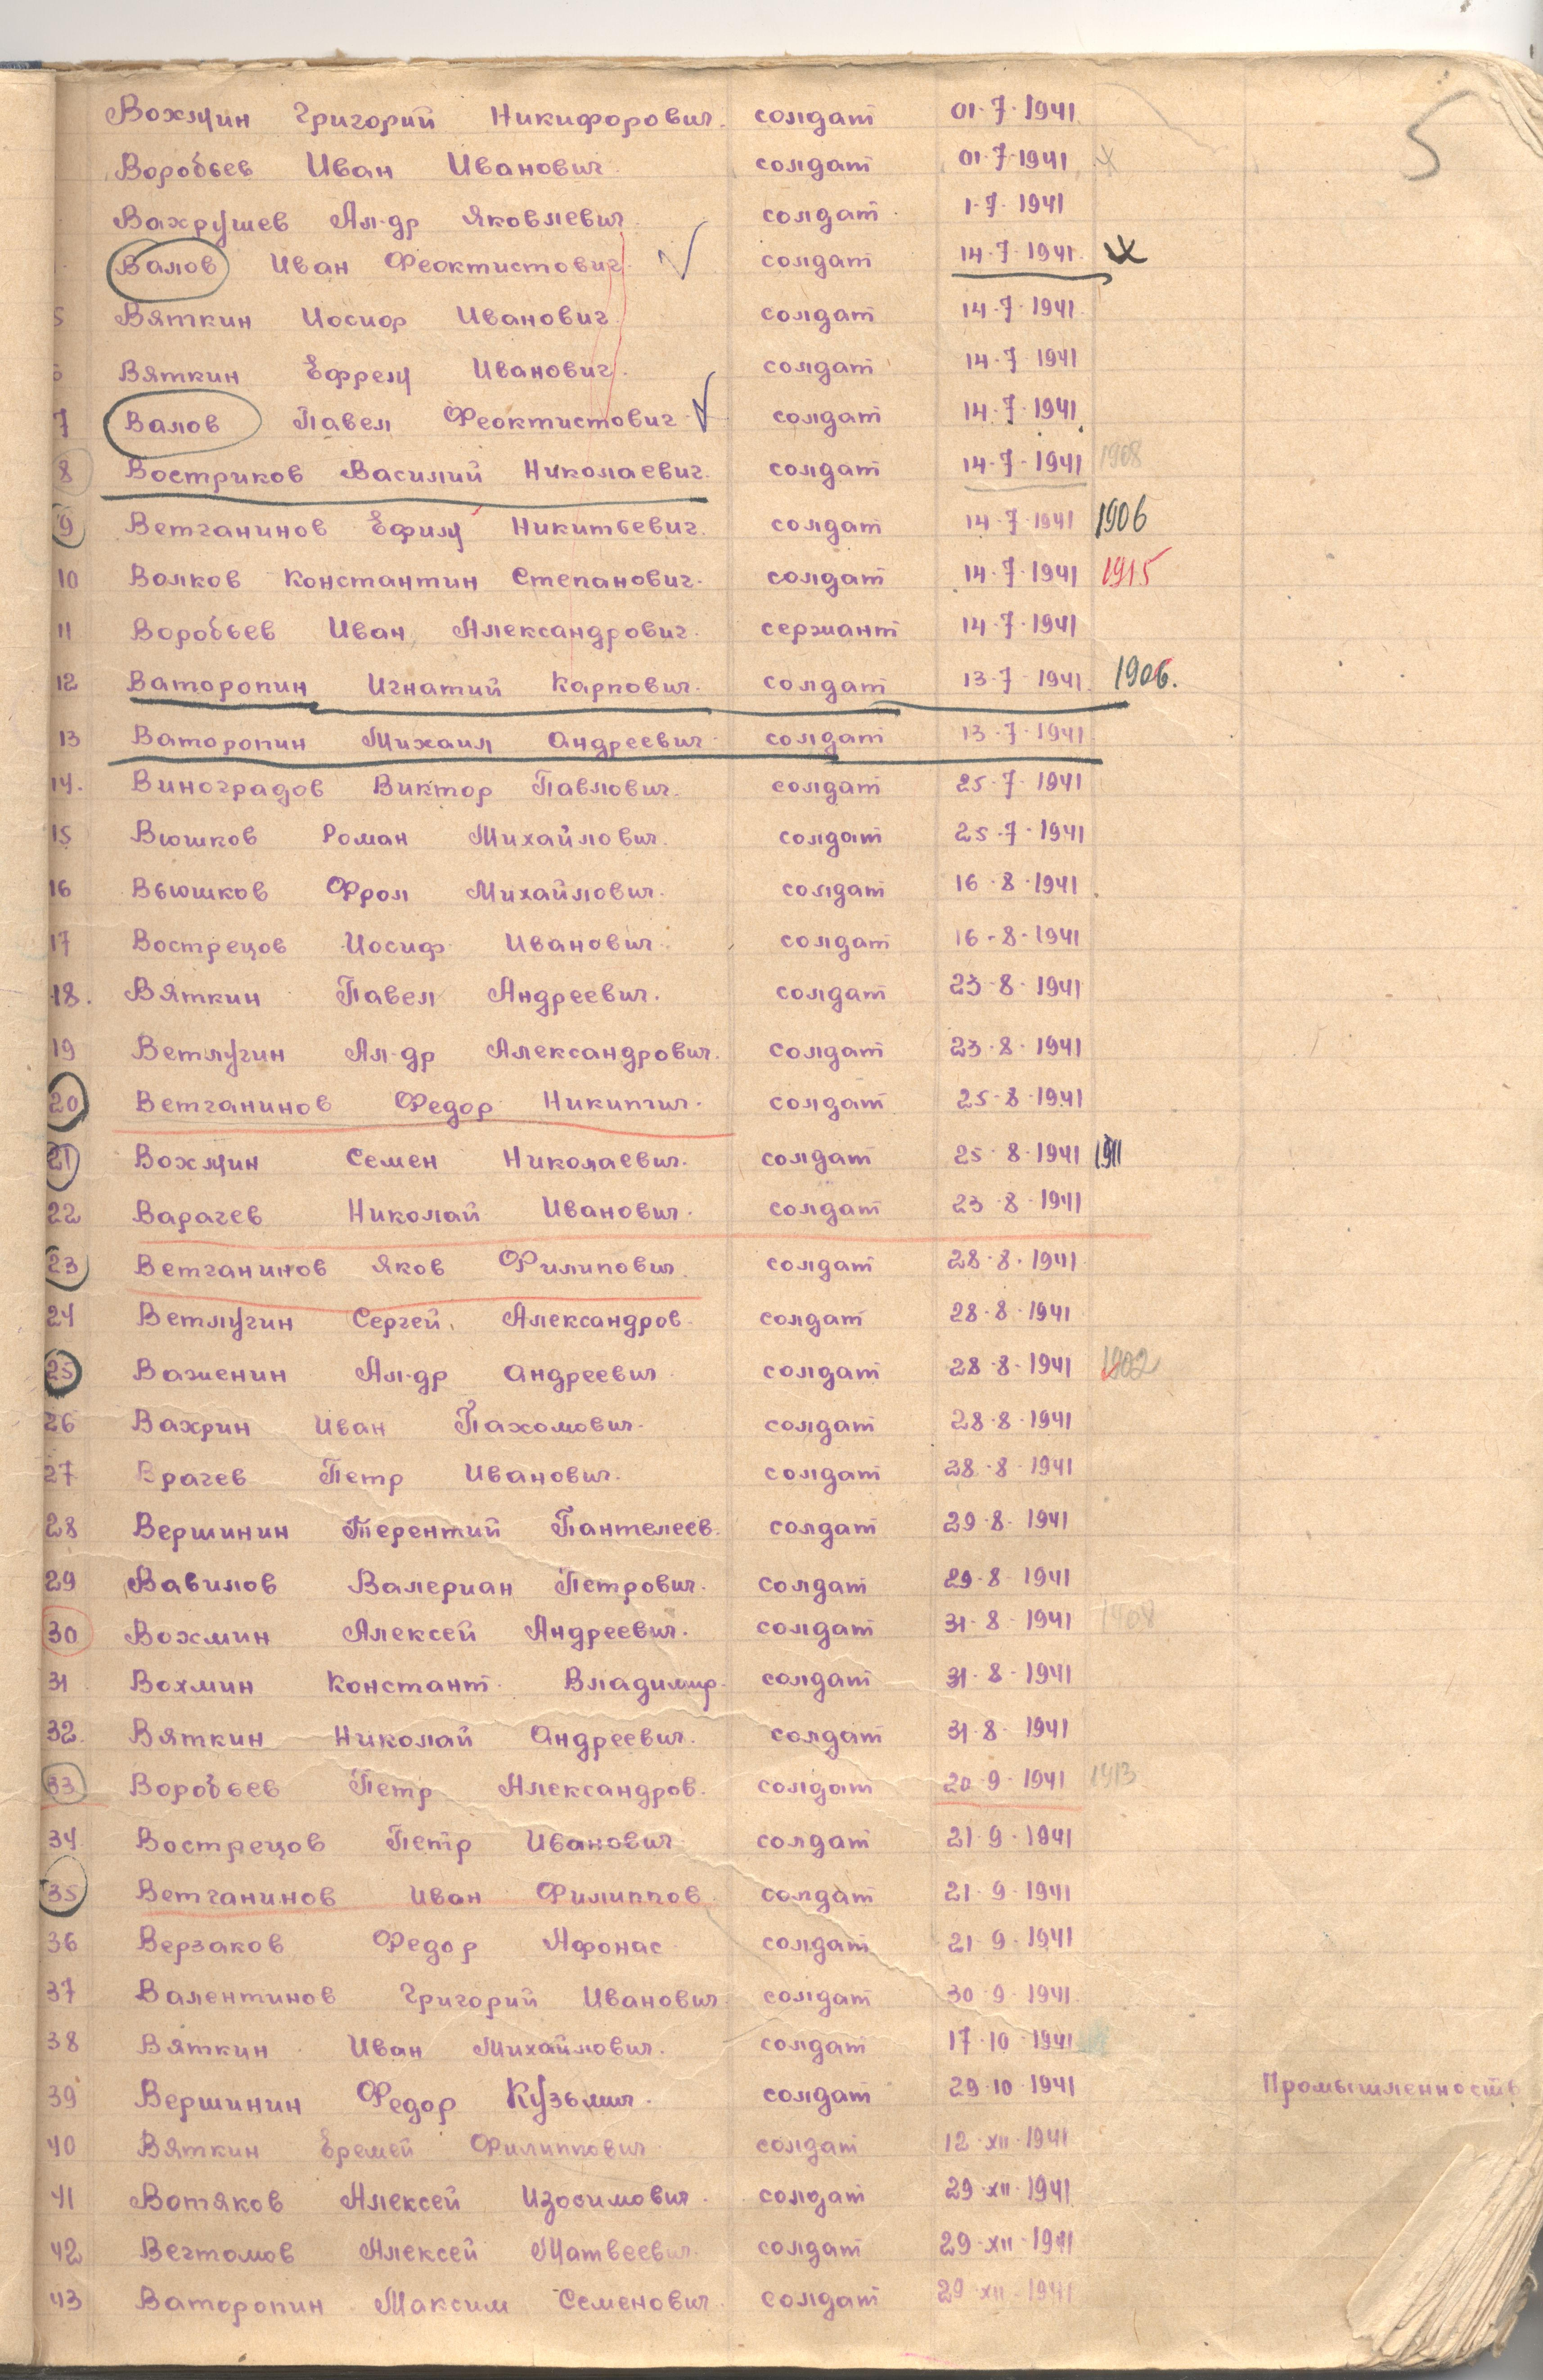 5
Вохмин Григорий Никифорович. солдат 01·7·1941
Воробьев Иван Иванович. солдат 01·7·1941 х
Вахрушев Ал-др Яковлевич. солдат. 1·7·1941
Валов Иван Феоктистович. √ солдат 14·7·1941. х
5 Вяткин Иосиф Иванович. солдат 14·7·1941.
6 Вяткин Ефрем Иванович. солдат 14·7·1941
7 Валов Павел Феоктистович √ солдат 14·7·1941
8 Востриков Василий Николаевич. солдат 14·7·1941 1908
9 Ветчанинов Ефим Никитьевич. солдат 14·7·1941 1906
10 Волков Константин Степанович. солдат 14·7·1941 1915
11 Воробьев Иван Александрович. сержант 14·7·1941
12 Ваторопин Игнатий Карпович. солдат 13·7·1941. 1906.
13 Ваторопин Михаил Андреевич. солдат 13·7·1941.
14. Виноградов Виктор Павлович. солдат 25·7·1941
15 Вюшков Роман Михайлович. солдат 25·7·1941
16 Вьюшков Фрол Михайлович. солдат 16·8·1941.
17 Вострецов Иосиф Иванович. солдат 16·8·1941
18. Вяткин Павел Андреевич. солдат 23·8·1941
19 Ветлугин Ал-др Александрович. солдат 23·8·1941
20 Ветчанинов Федор Никитич. солдат 25·8·1941
21 Вохмин Семен Николаевич. солдат 25·8·1941 1911
22 Варачев Николай Иванович. солдат 23·8·1941
23 Ветчанинов Яков Филипович. солдат 28·8·1941
24 Ветлугин Сергей Александров. солдат 28·8·1941
25 Важенин Ал-др Андреевич. солдат 28·8·1941 1902
26 Вахрин Иван Пахомович. солдат 28·8·1941
27 Врачев Петр Иванович. солдат 28·8·1941
28 Вершинин Терентий Пантелеев. солдат 29·8·1941
29 Вавилов Валериан Петрович. солдат 29·8·1941
30 Вохмин Алексей Андреевич. солдат 31·8·1941 1908
31 Вохмин Констант. Владимир. солдат 31·8·1941
32. Вяткин Николай Андреевич. солдат 31·8·1941
33 Воробьев Петр Александров. солдат 20·9·1941 1913
34 Вострецов Петр Иванович солдат 21·9·1941
35 Ветчанинов Иван Филиппов. солдат 21·9·1941
36 Верзаков Федор Афонас. солдат 21·9·1941
37 Валентинов Григорий Иванович солдат 30·9·1941.
38 Вяткин Иван Михайлович. солдат 17·10·1941
39 Вершинин Федор Кузьмич. солдат 29·10·1941 Промышленность
40 Вяткин Еремей Филиппович. солдат 12·XII·1941
41 Вотяков Алексей Изосимович. солдат 29·XII·1941
42 Вечтомов Алексей Матвеевич. солдат 29·XII·1941
43 Ваторопин Максим Семенович. солдат 29·XII·1941